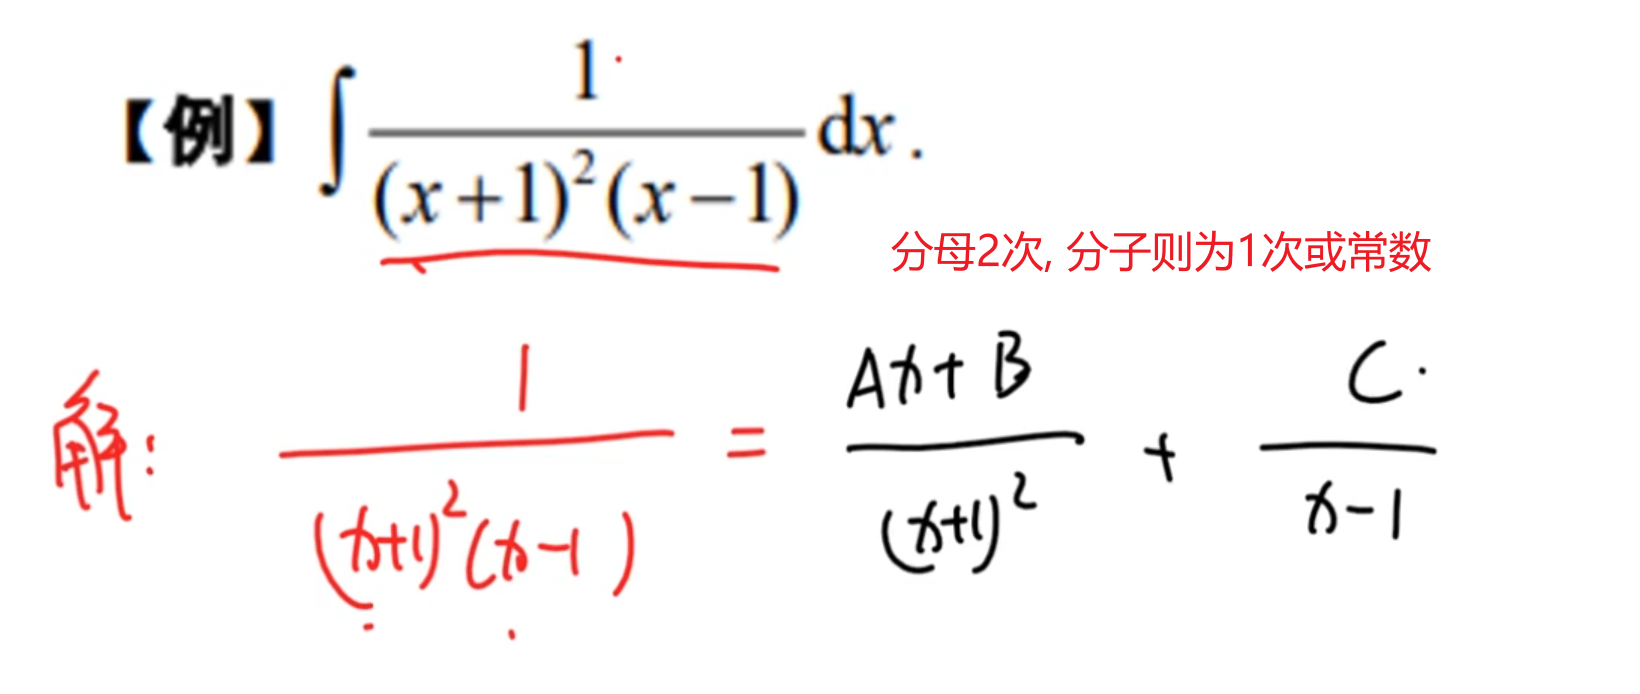 【例】∫ 1/((x+1)²(x−1)) dx.
分母2次, 分子则为1次或常数
解: 1/((x+1)²(x-1)) = (Ax+B)/(x+1)² + C/(x-1)